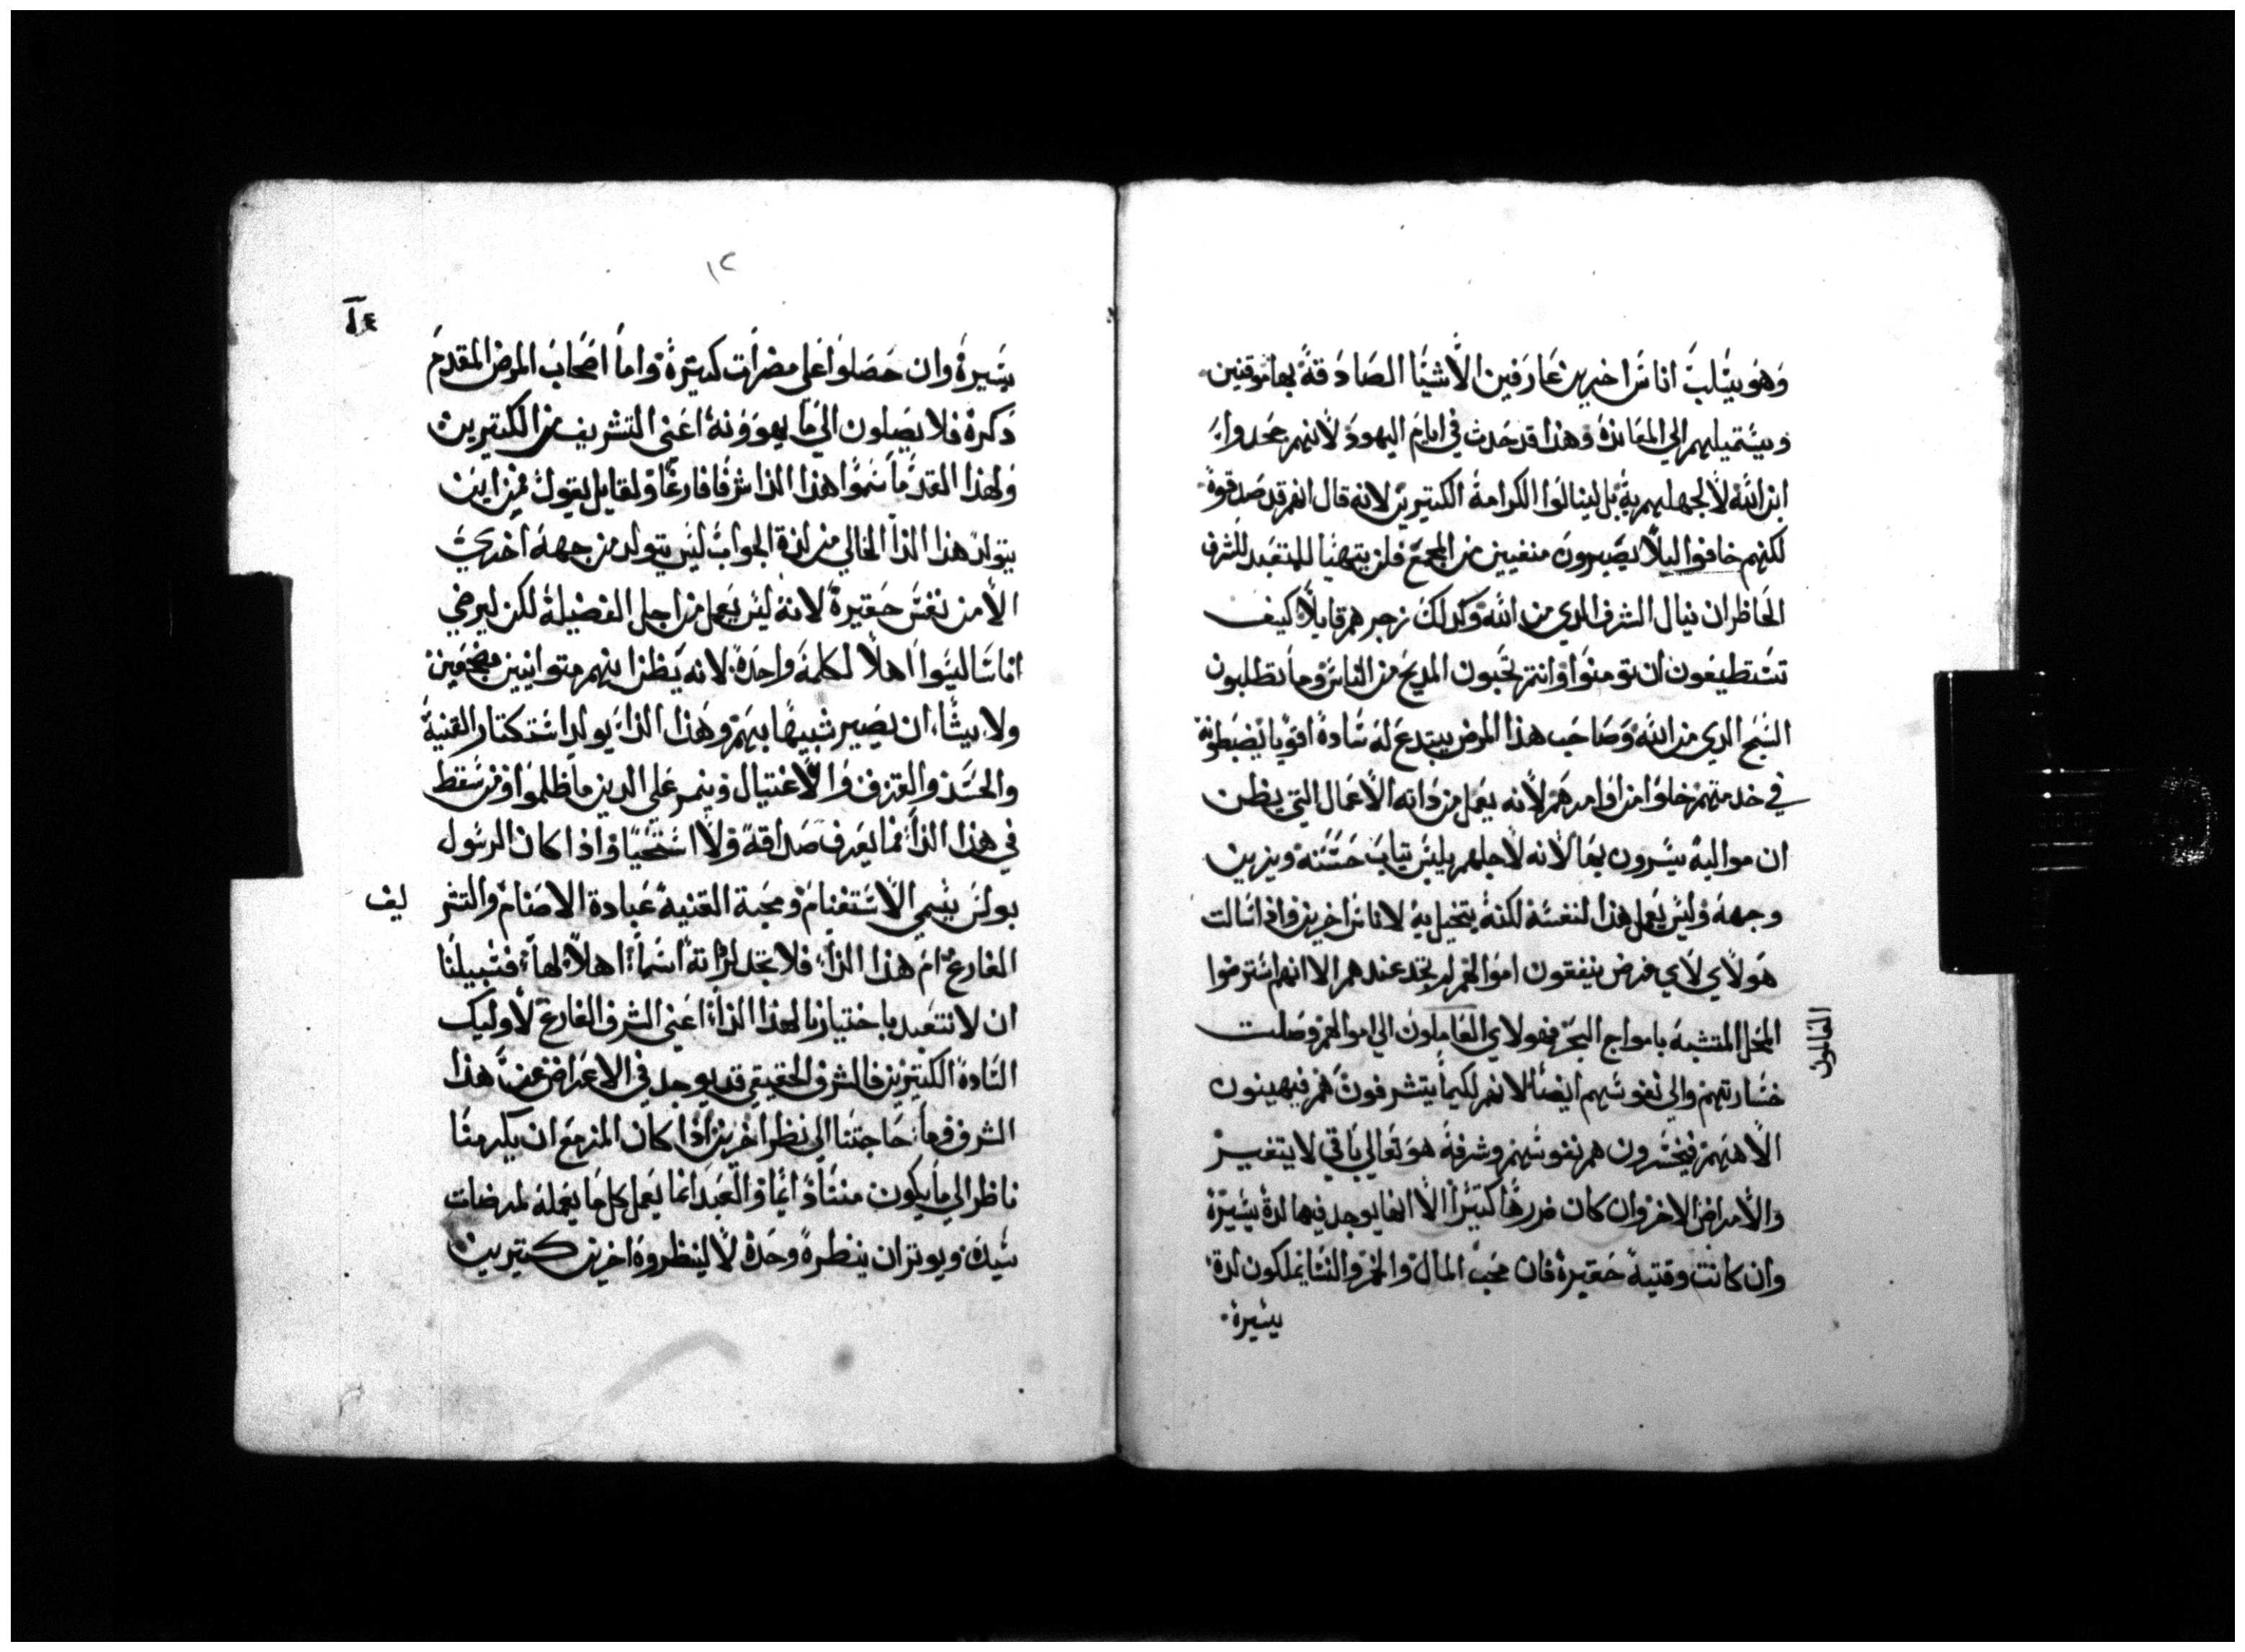 وهو يتلب اناس اخرين عارفين الاشيا الصادقة بها موقنين
ويستميلهم الي المعاندة وهذا قد حدث في ايام اليهود لانهم جحدوا
ابن الله لا لجهلهم به بل لينالوا الكرامة الكتيرين لانه قال انهم قد صدقوه
لكنهم خافوا ليلا يصيرون منفيين من المجمع فلن يتهيا للمتعبد للشرف
الحاظر ان ينال الشرف الدي من الله وكدلك زجرهم قايلا كيف
تستطيعون ان تومنوا وانتم تحبون المديح من الناس وما تطلبون
السبح الدي من الله وصاحب هذا المرض يبتدع له سادة اقويا يضبطونه
في خدمتهم خلوا من اوامرهم لانه يعمل من داته الاعمال التي يظن
ان مواليه يسرون بها لانه لاجلهم يلبس تياب حسنه ويزين
وجهه وليس يعمل هذا لنفسه لكنه يتخيل به لاناس اخرين واذا سالت
هولاي لاي غرض ينفقون اموالهم لم تجد عندهم الا انهم استرضوا
المحل المتشبه بامواج البحر فهولاي العاملون الي اموالهم وصلت
العاملون
خسارتهم والي نفوسهم ايضا لانهم لكيما يتشرفون هم فيهينون
الاههم فيخسرون هم نفوسهم وشرفه هو تعالي باقي لا يتغير
والامراض الاخر وان كان ضررها كتيرا الا انها يوجد فيها لدة يسيرة
وان كانت وقتية حقيرة فان محب المال والخمر والنسا يملكون لدة
يسيرة
١٢
يسيرة وان حصلوا علي مضرات كتيرة واما اصحاب المرض المقدم
دكره فلا يصلون الي ما يهوونه اعني التشريف من الكتيرين
ولهذا القدما سموا هذا الدا شرفا فارغا ولقايل يقول فمن اين
يتولد هذا الدا الخالي من لدة الجواب ليس يتولد من جهة اخري
الا من نفس حقيرة لانه ليس يعمل من اجل الفضيلة لكن ليرضي
اناسا ليسوا اهلا لكلمة واحدة لانه يظن انهم متوانيين منجحفين
ولا يشا ان يصير شبيها بهم وهذا الدا يولد استكتار القنية
والحسد والقرف والاغتيال وينمر علي الدين ما ظلموا ومن سقط
في هذا الدا فما يعرف صداقة ولا استحيا واذا كان الرسول
بولس يسمي الاستغنام ومحبة القنية عبادة الاصنام والتشر
يف
الفارغ ام هذا الدا فلا تجد لردالته اسما اهلا لها فسبيلنا
ان لا نتعبد باختيارنا لهذا الدا اعني الشرف الفارغ لاوليك
السادة الكتيرين فالشرف الحقيقي قد يوجد في الاعراض عن هذا
الشرف فما حاجتنا الي نظر اخرين اذا كان المزمع ان يكرمنا
ناظر الي ما يكون منا دايما والعبد انما يعمل كل ما يعمله لمرضات
سيده ويوتر ان ينظره وحده لا لينظروه اخرين كتيرين